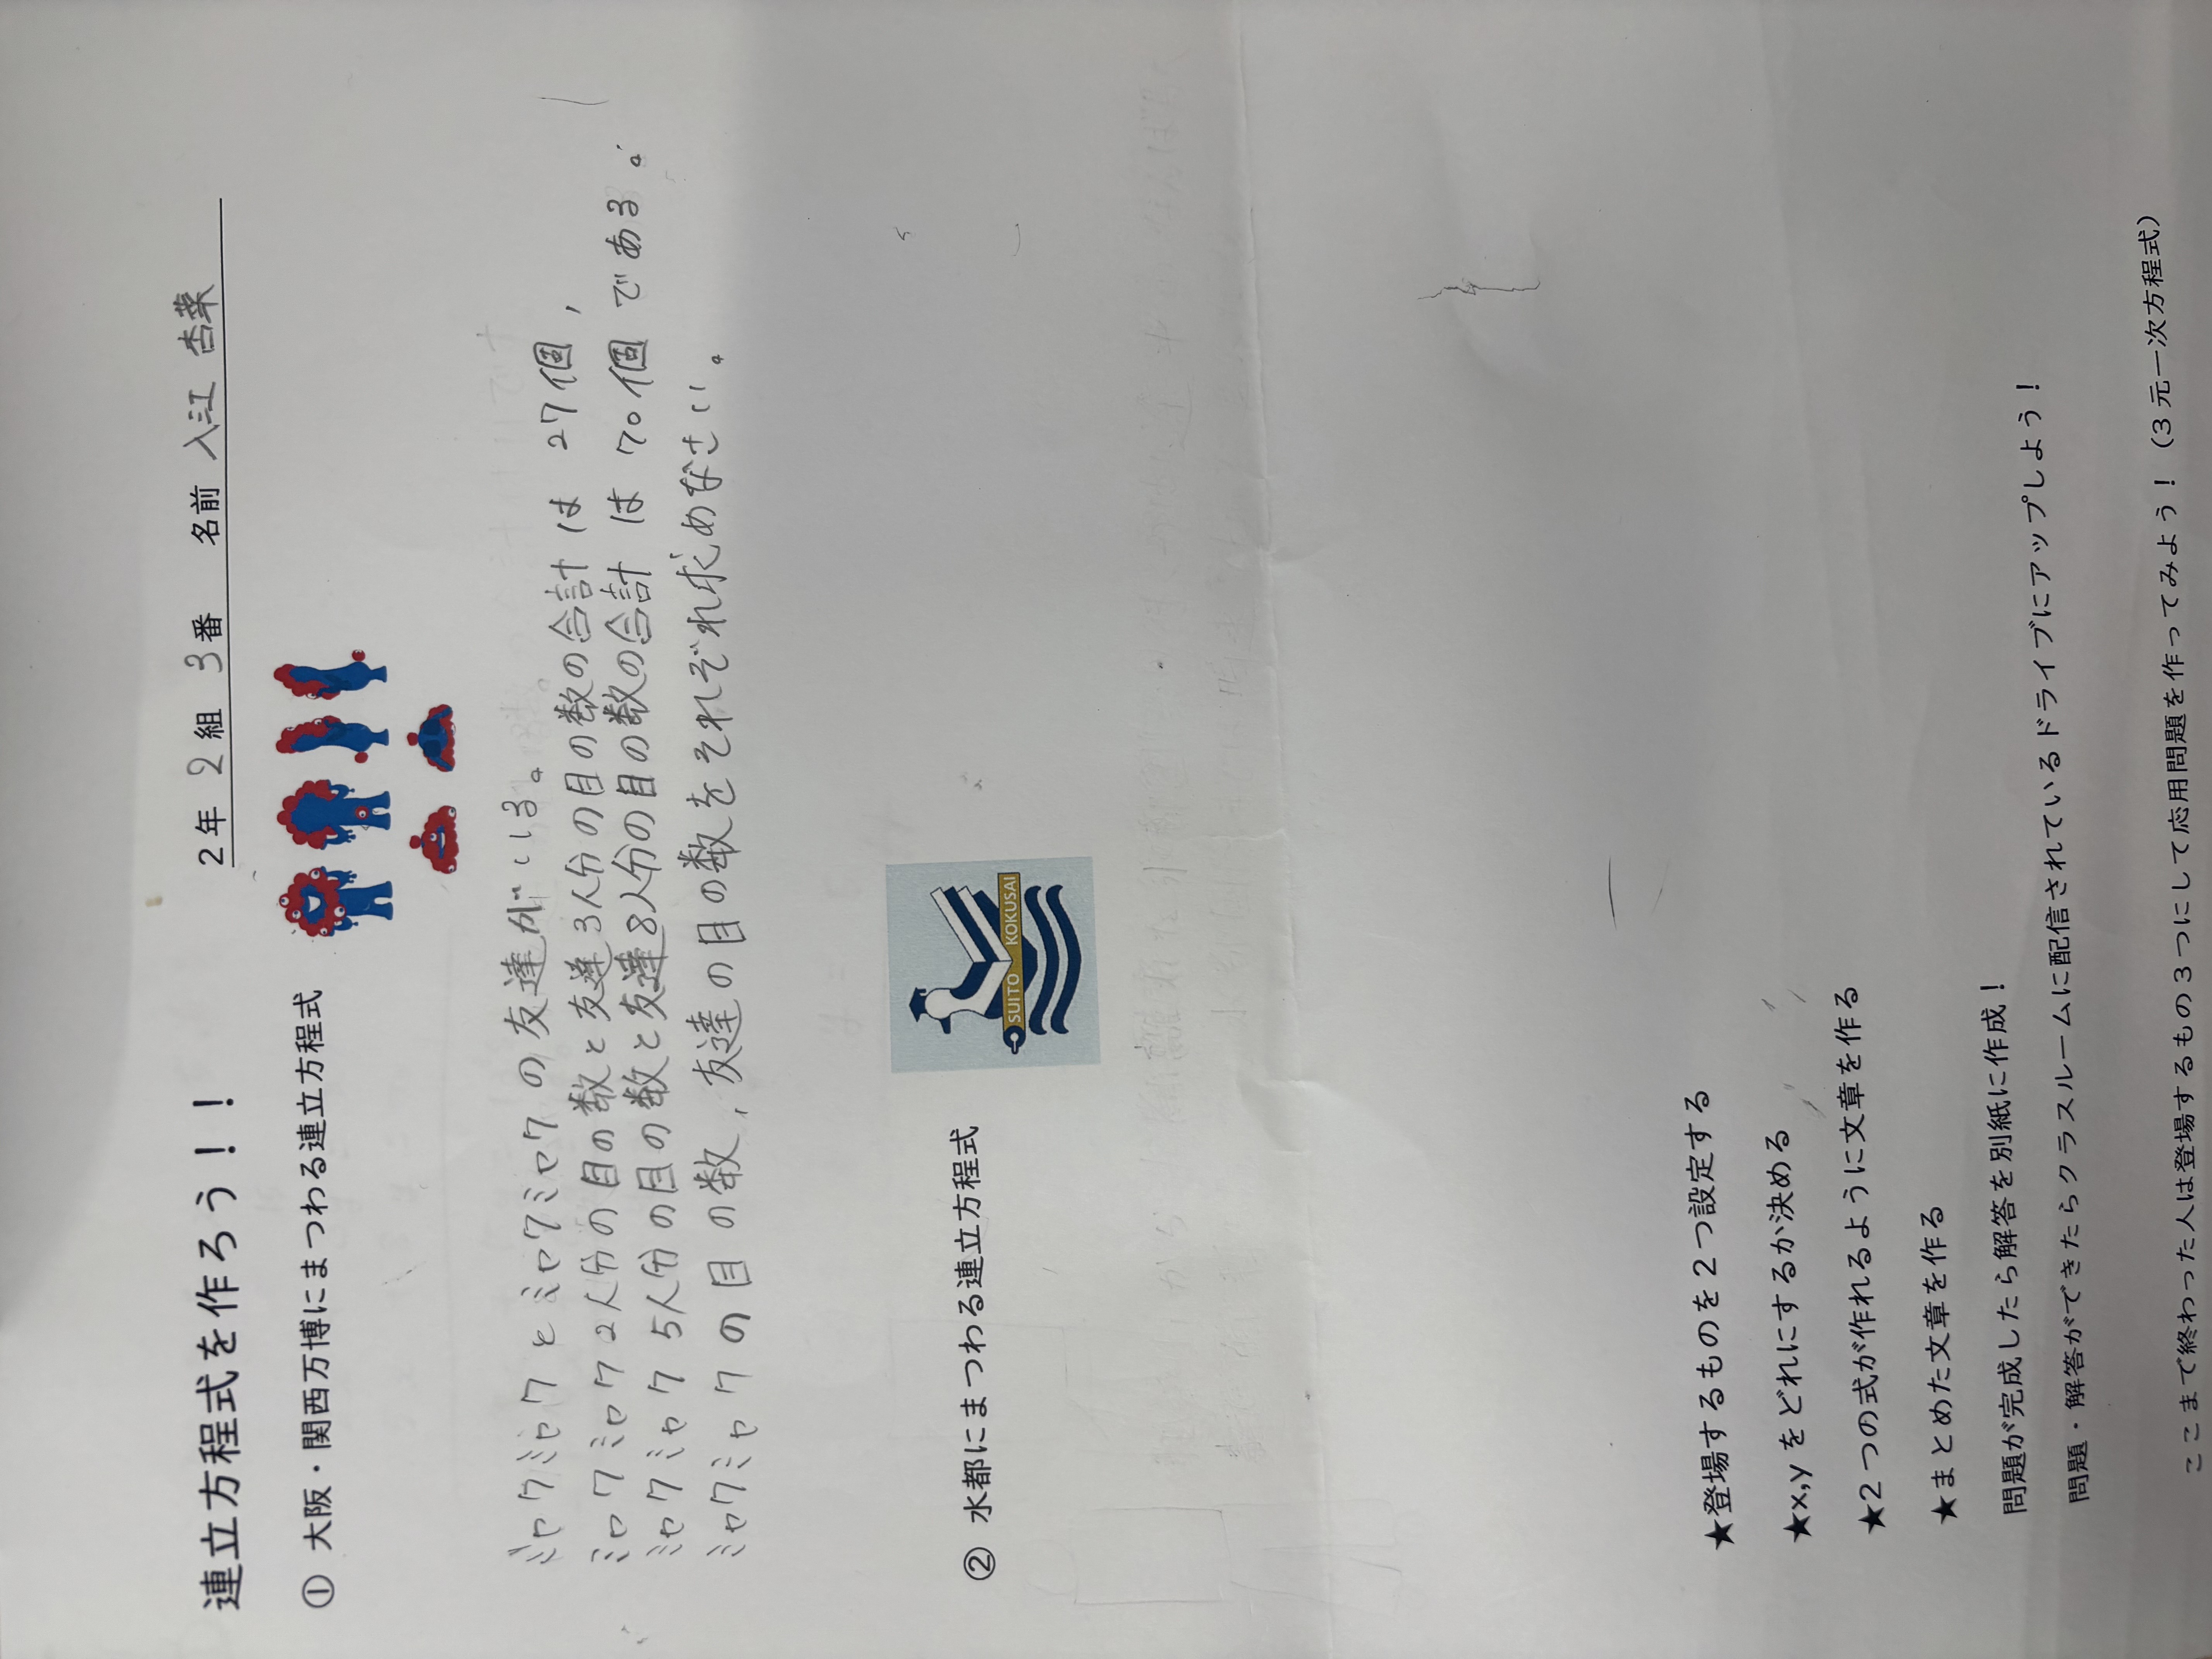 連立方程式を作ろう！！
2年 2組 3番 名前 入江 杏菜
① 大阪・関西万博にまつわる連立方程式
ミャクミャクとミャクミャクの友達がいる。
ミャクミャク2人分の目の数と友達3人分の目の数の合計は 27個,
ミャクミャク 5人分の目の数と友達8人分の目の数の合計は 70個である。
ミャクミャクの目の数,友達の目の数をそれぞれ求めなさい。
② 水都にまつわる連立方程式
SUITO KOKUSAI
★登場するものを2つ設定する
★x,y をどれにするか決める
★2つの式が作れるように文章を作る
★まとめた文章を作る
問題が完成したら解答を別紙に作成！
問題・解答ができたらクラスルームに配信されているドライブにアップしよう！
ここまで終わった人は登場するもの3つにして応用問題を作ってみよう！（3元一次方程式）